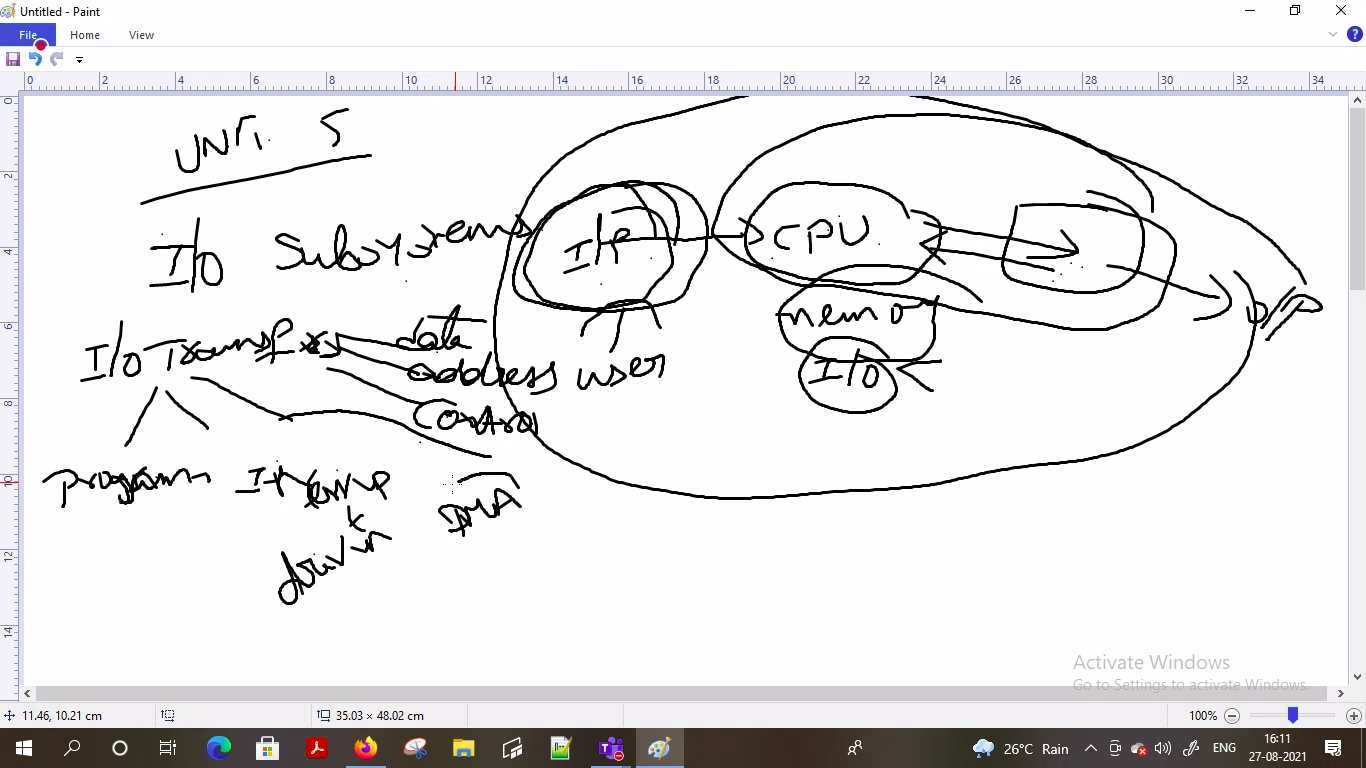 Untitled - Paint
File Home View
0 2 4 6 8 10 12 14 16 18 20 22 24 26 28 30 32 34
0
2
4
6
8
10
12
14
UNIT 5
I/O Subsystems
I/P CPU O/P
memo
I/O
I/O Transfers data
address user
Control
Program Interrupt DMA
driven
Activate Windows
Go to Settings to activate Windows.
11.46, 10.21 cm 35.03 × 48.02 cm 100%
26°C Rain ENG 16:11
27-08-2021